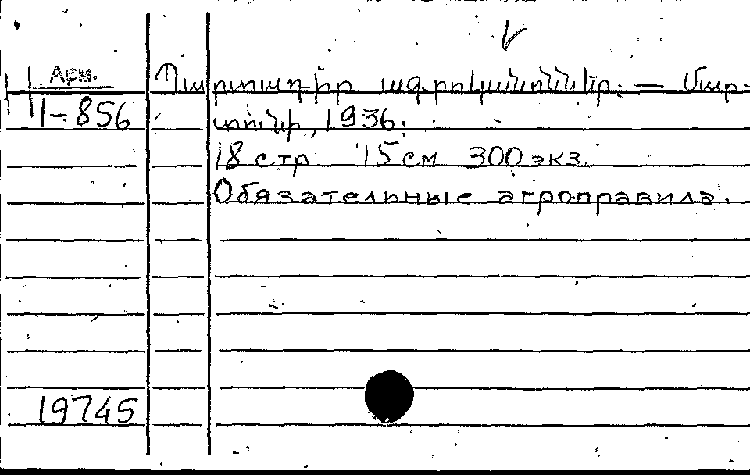 Арм.
1-856
Պարտադիր ագրոկանոններ. — Մար-
տունի, 1936.
18 стр 15 см 300 экз.
Обязательные агроправила.
19745